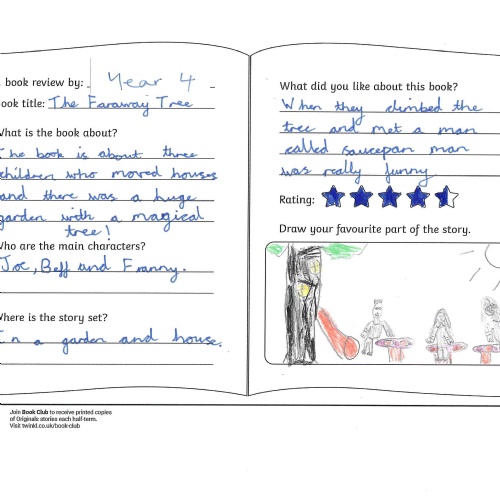 book review by: Year 4
ook title: The Faraway Tree
What is the book about?
The book is about three
children who moved houses
and there was a huge
garden with a magical
tree!
Who are the main characters?
Joe, Beff and Franny.
Where is the story set?
In a garden and house.
What did you like about this book?
When they climbed the
tree and met a man
called saucepan man
was really funny
Rating:
Draw your favourite part of the story.
Join Book Club to receive printed copies
of Originals stories each half-term.
Visit twinkl.co.uk/book-club